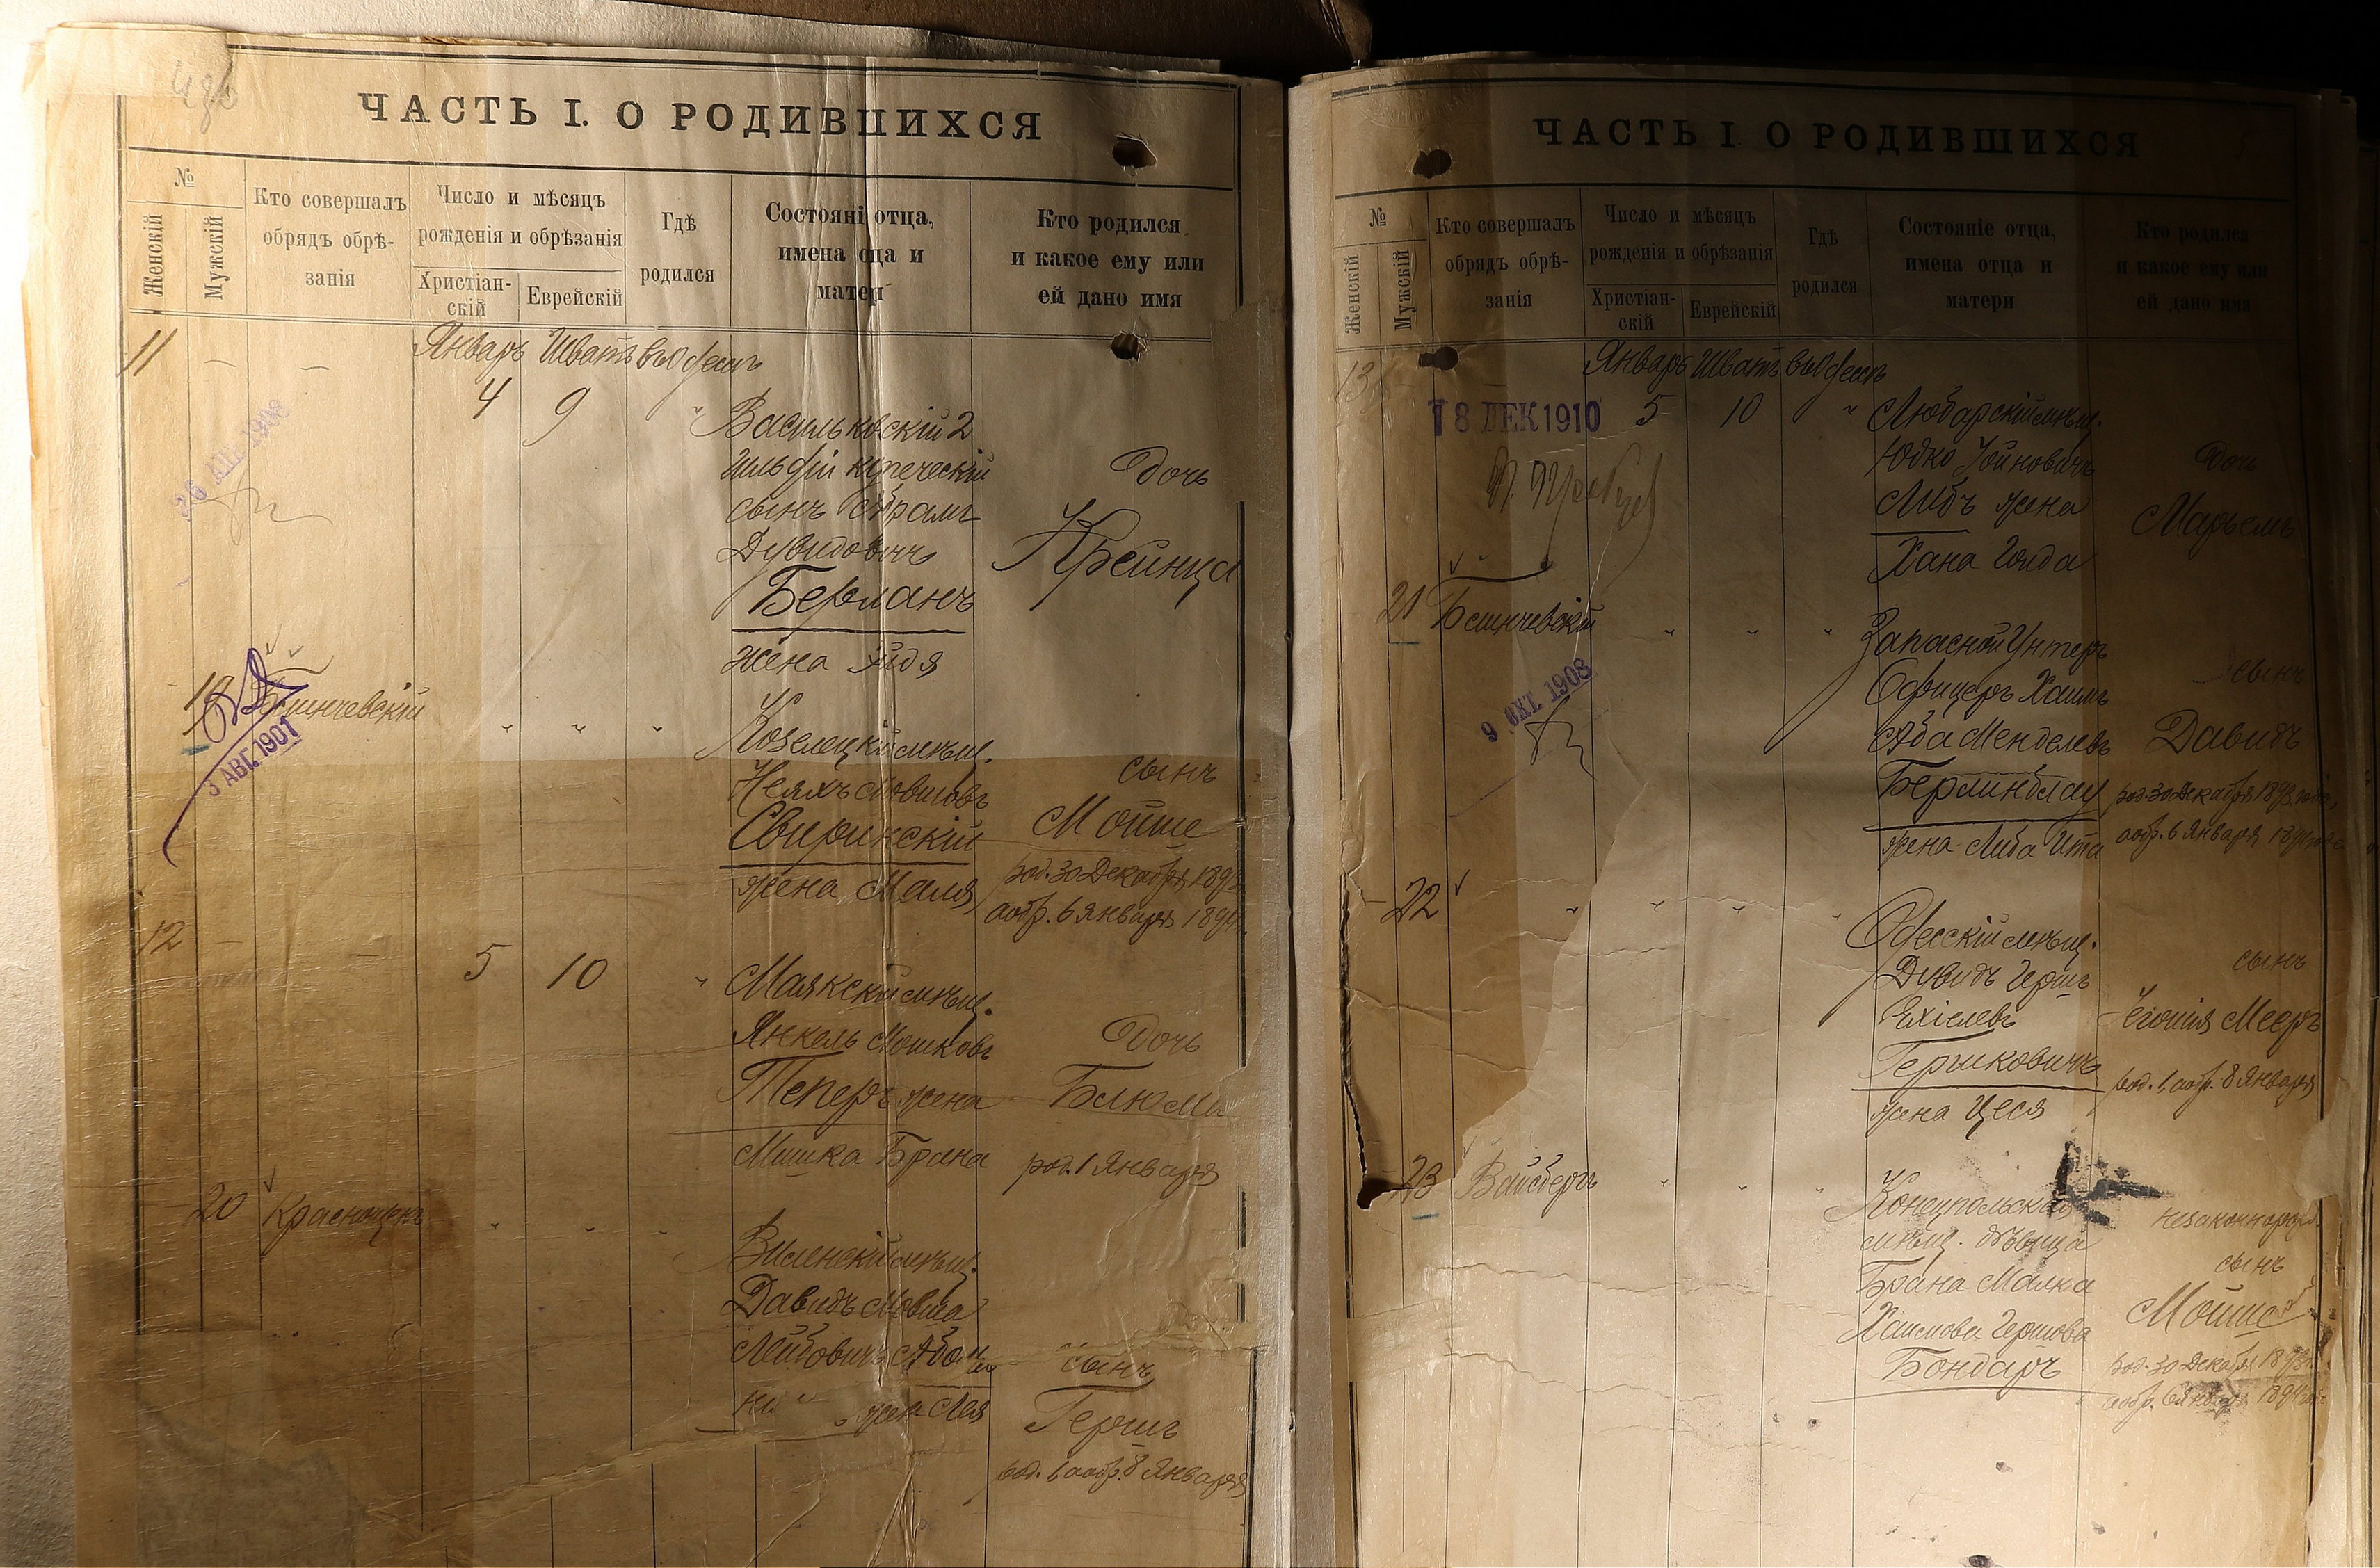 ЧАСТЬ I. О РОДИВШИХСЯ
№
Женскій
Мужскій
Кто совершалъ
обрядъ обрѣ-
занія
Число и мѣсяцъ
рожденія и обрѣзанія
Христіан-
скій
Еврейскій
Гдѣ
родился
Состояні отца,
имена оца и
матер
Кто родился
и какое ему или
ей дано имя
11 — —
Январь Шватъ въ Одессѣ
4 9 "
Васильковскій 2
гильдіи купеческій
сынъ Абрамъ
Дувидовичъ
Берманъ
жена Эйдя
дочь
Крейнца
1908
3 АВГ. 1901
" " "
Козелецкій мѣщ.
Неяхъ Мовшовъ
Свиринскій
жена Маля
сынъ
Мойше
род. 30 Декабря 1893
а обр. 6 Января 1894
12 — —
5 10 "
Маякскій мѣщ.
Янкель Мошковъ
Теперъ жена
Мишка Брана
дочь
Блюма
род. 1 Января
20 Краснощекъ
" " "
Виленскій мѣщ.
Давидъ Мовша
Лейбовичъ
жена Лея
сынъ
Гершъ
род. 1, а обр. 8 Января
ЧАСТЬ I. О РОДИВШИХСЯ
№
Женскій
Мужскій
Кто совершалъ
обрядъ обрѣ-
занія
Число и мѣсяцъ
рожденія и обрѣзанія
Христіан-
скій
Еврейскій
Гдѣ
родился
Состояніе отца,
имена отца и
матери
Кто родился
и какое ему или
ей дано имя
13 — —
Январь Шватъ въ Одессѣ
18 ДЕК 1910
5 10 "
Любарскій мѣщ.
Юдко Йойновичъ
Либъ жена
Хана Голда
дочь
Марьемъ
21
" " "
9 ОКТ. 1908
Запасной Унтеръ
Офицеръ Хаимъ
Аба Менделевъ
Берлинблау
жена Либа Ита
сынъ
Давидъ
род. 30 Декабря 1893 года,
а обр. 6 Января 1894 года
22
" " " "
Одесскій мѣщ.
Дувидъ Гершъ
Ехіелевъ
Гершковичъ
жена Цеся
сынъ
Іегошія Мееръ
род. 1, а обр. 8 Января
23 Вайсбергъ
" " "
Конецпольская
мѣщ. дѣвица
Брана Малка
Хаимова Гершова
Бондаръ
незаконнорожд.
сынъ
Мойше
род. 30 Декабря 1893 г.
а обр. 6 Января 1894 года